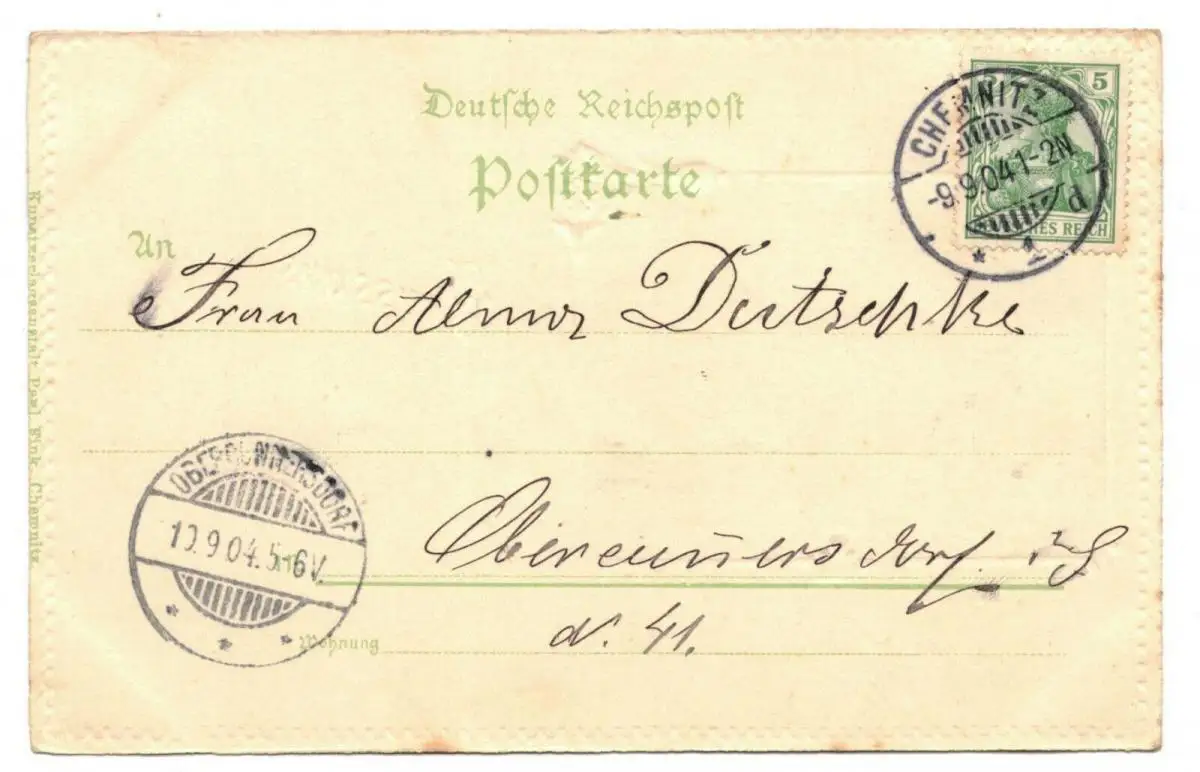 Deutsche Reichspost
Postkarte
An
Frau Alma Deutschke
Obercunnersdorf i/S
N. 41.
Wohnung
CHEMNITZ
-9.9.04.1-2N
* 1 d
5
HES REICH
OBERCUNNERSDORF
10.9.04.5-6V.
* * *
Kunstverlagsanstalt Paul Fink, Chemnitz